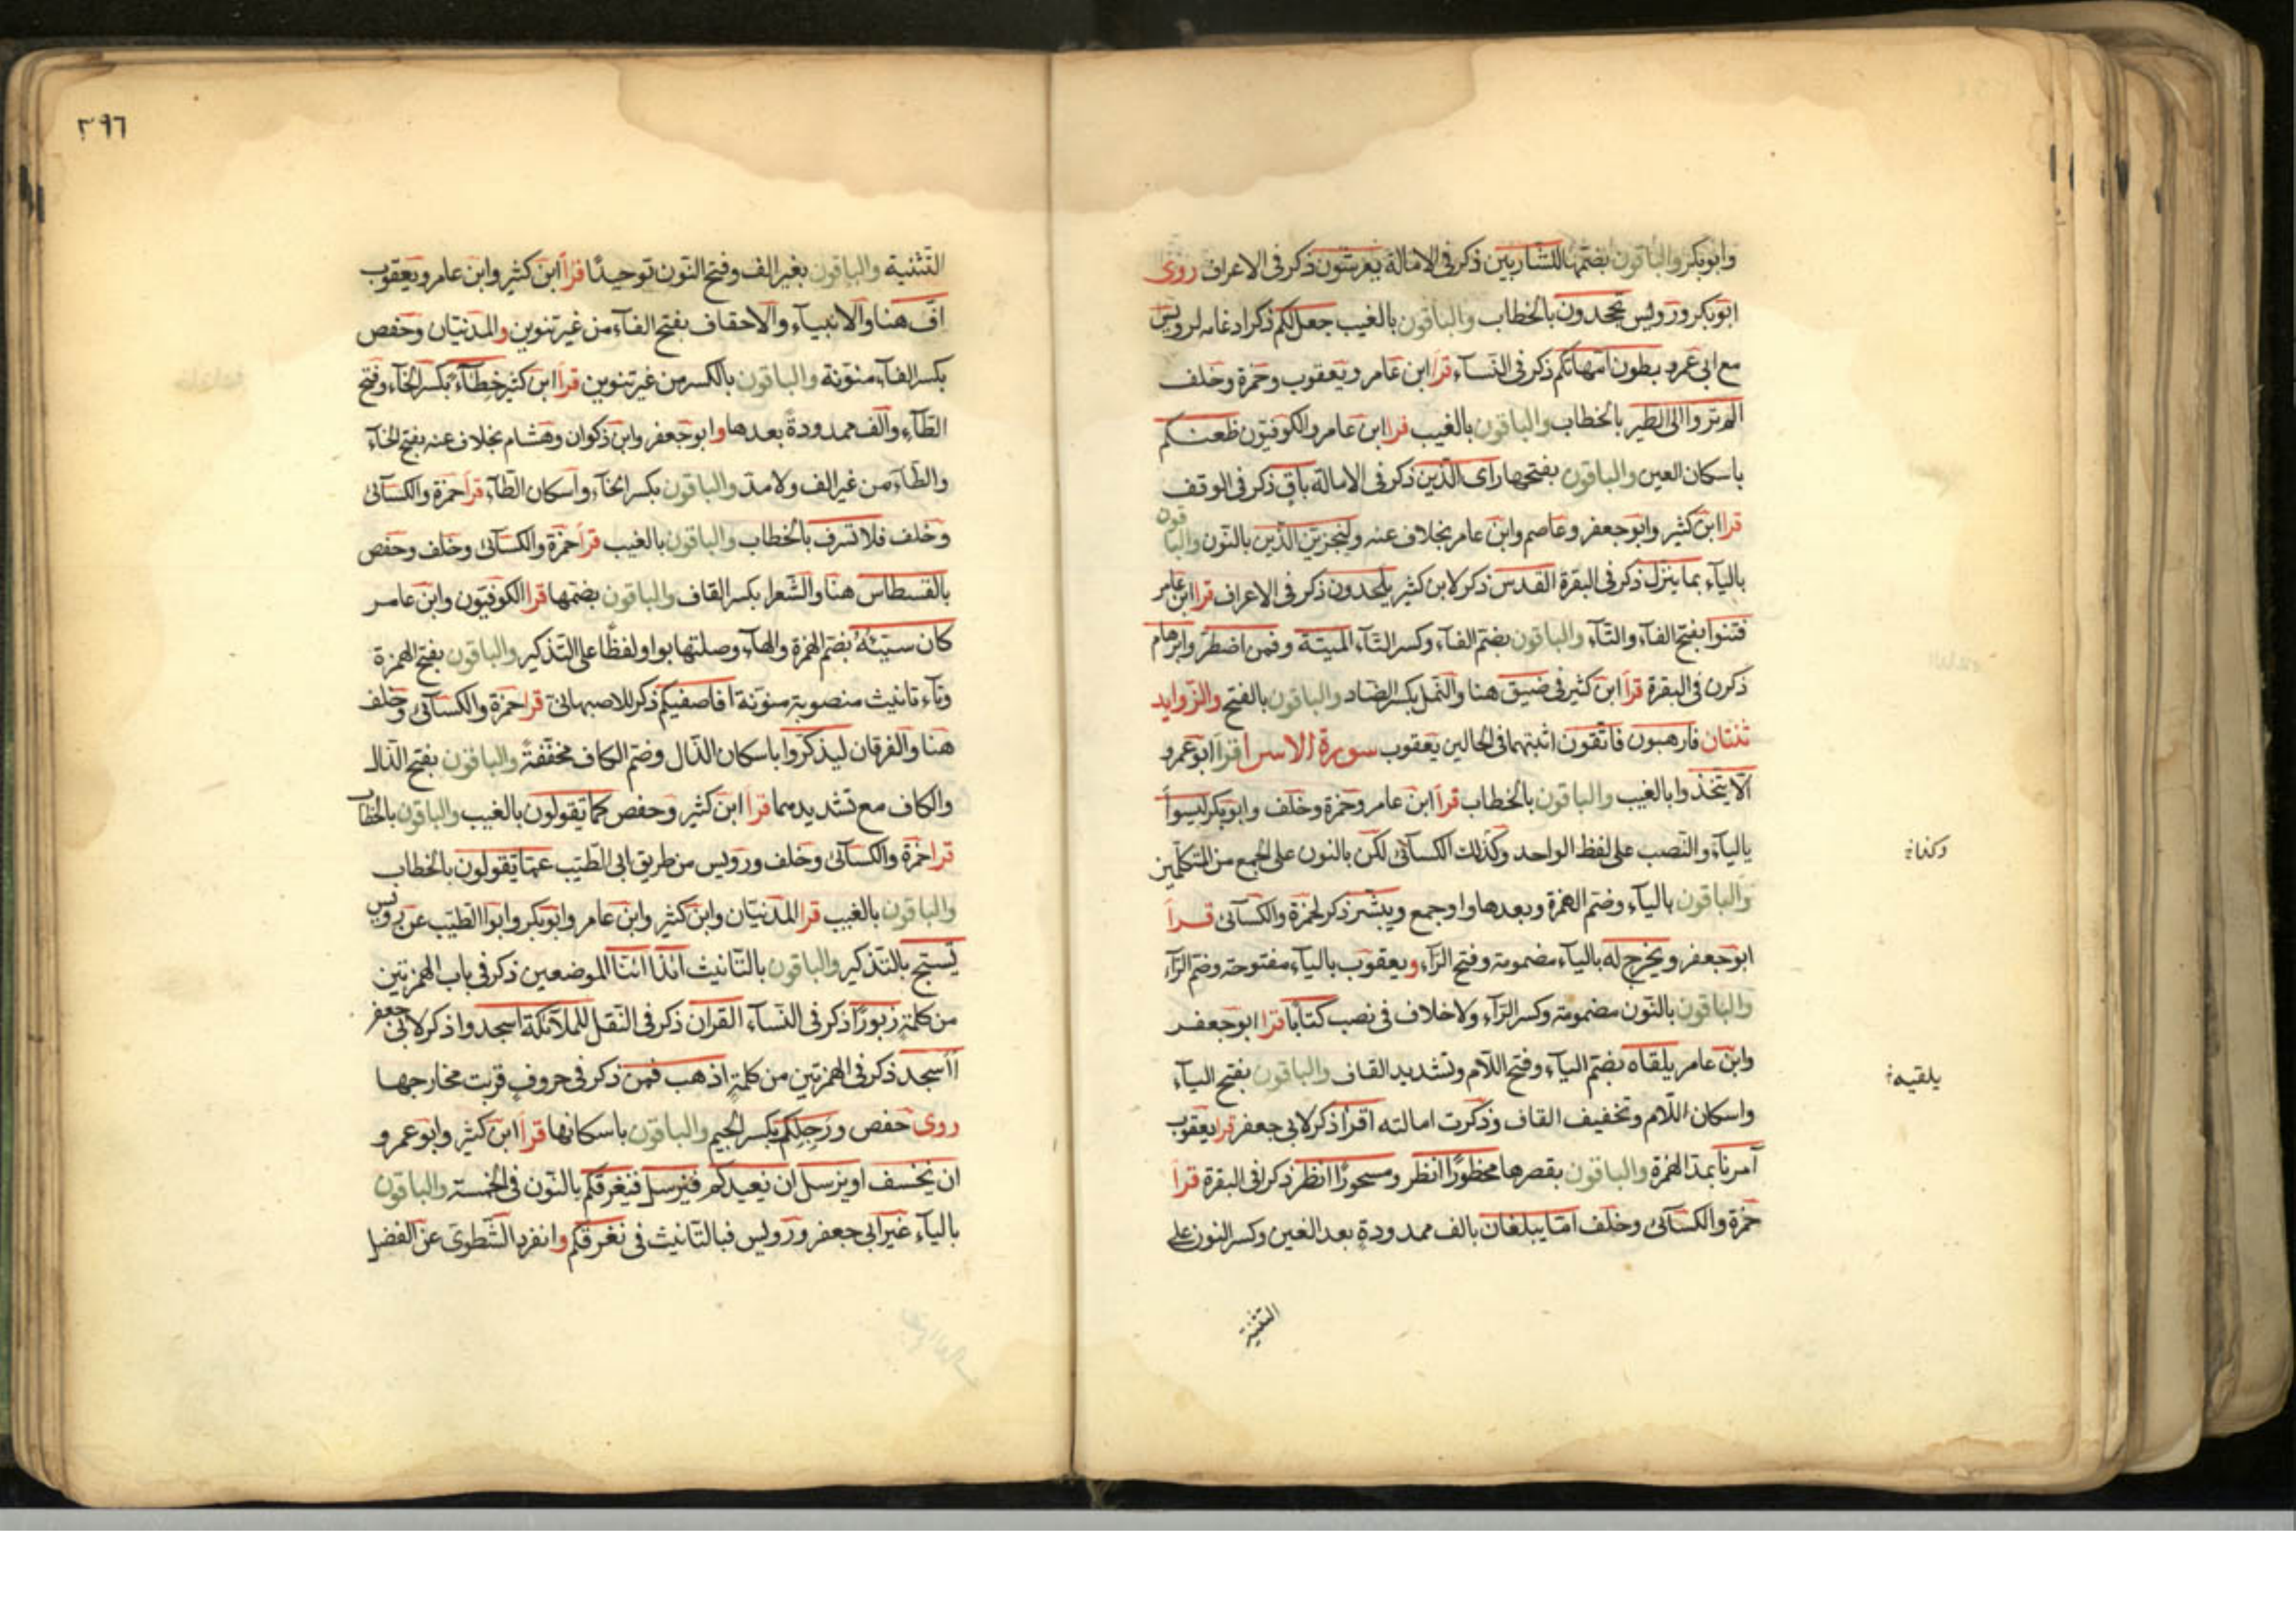 وابوبكر والباقون بضمها للشاربين ذكر فى الامالة يعرشون ذكر فى الاعراف روى
ابوبكر ورويس تجحدون بالخطاب والباقون بالغيب جعل لكم ذكر ادغامه لرويس
مع ابى عمرو بطون امهاتكم ذكر فى النسآء قرا ابن عامر ويعقوب وحمزة وخلف
الم تروا الى الطير بالخطاب والباقون بالغيب قرا ابن عامر والكوفيون ظعنكم
باسكان العين والباقون بفتحها راى الذين ذكر فى الامالة باق ذكر فى الوقف
قرا ابن كثير وابو جعفر وعاصم وابن عامر بخلاف عنه ولنجزين الذين بالنون والباقون
باليآء بما ينزل ذكر فى البقرة القدس ذكر لابن كثير يلحدون ذكر فى الاعراف قرا ابن عامر
فتنوا بفتح الفآء والتآء والباقون بضم الفآء وكسر التآء الميتة وفمن اضطر وابرهام
ذكرن فى البقرة قرا ابن كثير فى ضيق هنا والنمل بكسر الضاد والباقون بالفتح والزوايد
ثنتان فارهبون فاتقون اثبتهما فى الحالين يعقوب سورة الاسرا قرا ابو عمرو
الا يتخذوا بالغيب والباقون بالخطاب قرا ابن عامر وحمزة وخلف وابوبكر ليسوأ
باليآء والنصب على لفظ الواحد وكذلك الكسآئى لكن بالنون على الجمع من المتكلمين
والباقون باليآء وضم الهمزة وبعدها واو جمع ويبشر ذكر لحمزة والكسآئى قرا
ابو جعفر ويخرج له باليآء مضمومة وفتح الرآء ويعقوب باليآء مفتوحة وضم الرآء
والباقون بالنون مضمومة وكسر الرآء ولا خلاف فى نصب كتابا قرا ابو جعفر
وابن عامر يلقاه بضم اليآء وفتح اللام وتشديد القاف والباقون بفتح اليآء
واسكان اللام وتخفيف القاف وذكرت امالته اقرأ ذكر لابى جعفر قرا يعقوب
آمرنا بمد الهمزة والباقون بقصرها محظورا انظر ومسحورا انظر ذكرا فى البقرة قرا
حمزة والكسآئى وخلف اما يبلغان بالف ممدودة بعد الغين وكسر النون على
التثنية
يلقيه
٣٩٦
التثنية والباقون بغير الف وفتح النون توحيدا قرا ابن كثير وابن عامر ويعقوب
اف هنا والانبيآء والاحقاف بفتح الفآء من غير تنوين والمدنيان وحفص
بكسر الفآء منونة والباقون بالكسر من غير تنوين قرا ابن كثير خطآء بكسر الخآء وفتح
الطآء والف ممدودة بعدها وابو جعفر وابن ذكوان وهشام بخلاف عنه بفتح الخآء
والطآء من غير الف ولا مد والباقون بكسر الخآء واسكان الطآء قرا حمزة والكسآئى
وخلف فلا تسرف بالخطاب والباقون بالغيب قرا حمزة والكسآئى وخلف وحفص
بالقسطاس هنا والشعرا بكسر القاف والباقون بضمها قرا الكوفيون وابن عامر
كان سيئه بضم الهمزة والهآء وصلتها بواو لفظا على التذكير والباقون بفتح الهمزة
وتآء تانيث منصوبة منونة افاصفيكم ذكر للاصبهانى قرا حمزة والكسآئى وخلف
هنا والفرقان ليذكروا باسكان الذال وضم الكاف مخففة والباقون بفتح الذال
والكاف مع تشديدهما قرا ابن كثير وحفص كما يقولون بالغيب والباقون بالخطاب
قرا حمزة والكسآئى وخلف ورويس من طريق ابى الطيب عما تقولون بالخطاب
والباقون بالغيب قرا المدنيان وابن كثير وابن عامر وابوبكر وابوا الطيب عن رويس
يسبح بالتذكير والباقون بالتانيث ائذا ائنا الموضعين ذكر فى باب الهمزتين
من كلمة زبورا ذكر فى النسآء القران ذكر فى النقل للملآئكة اسجدوا ذكر لابى جعفر
أأسجد ذكر فى الهمزتين من كلمة اذهب فمن ذكر فى حروف قربت مخارجها
روى حفص ورجلك بكسر الجيم والباقون باسكانها قرا ابن كثير وابو عمرو
ان نخسف او نرسل ان نعيدكم فنرسل فنغرقكم بالنون فى الخمسة والباقون
باليآء غير ابى جعفر ورويس فبالتانيث فى تغرقكم وانفرد الشطوى عن الفضل